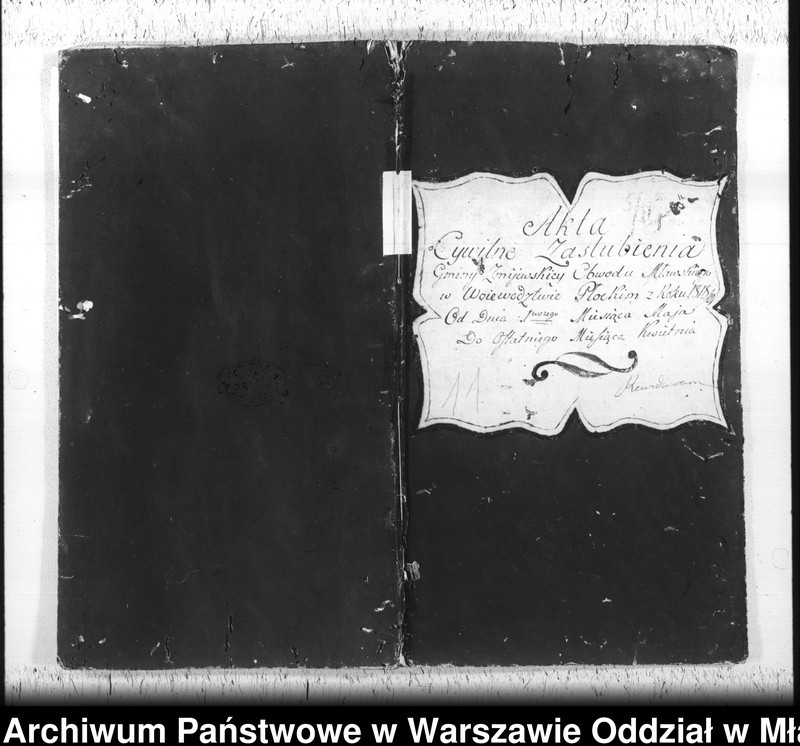 Akta
Cywilne Zaslubienia
Gminy Zmijewskiey Obwodu Mławskiem
w Woiewodztwie Płockim z Roku 1818/19
Od Dnia 1wszego Miesiąca Maja
Do Ostatniego Miesiąca Kwietnia
11.
Archiwum Państwowe w Warszawie Oddział w Mła